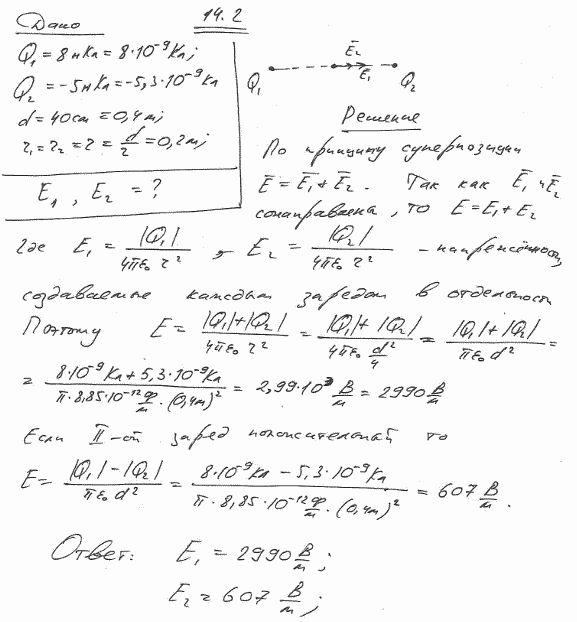 14.2
Дано
Q₁ = 8 нКл = 8·10⁻⁹ Кл;
Q₂ = -5 нКл = -5,3·10⁻⁹ Кл
d = 40 см = 0,4 м;
r₁ = r₂ = r = d/2 = 0,2 м;
E₁, E₂ = ?
Q₁ E̅₂ E̅₁ Q₂
Решение
По принципу суперпозиции
E̅ = E̅₁ + E̅₂. Так как E̅₁ и E̅₂
сонаправлена, то E = E₁ + E₂
где E₁ = |Q₁|/(4πε₀ r²), E₂ = |Q₂|/(4πε₀ r²) - напряжённость,
создаваемые каждым заредом в отдельности
Поэтому E = (|Q₁|+|Q₂|)/(4πε₀ r²) = (|Q₁|+|Q₂|)/(4πε₀ d²/4) = (|Q₁|+|Q₂|)/(πε₀ d²) =
= (8·10⁻⁹ Кл + 5,3·10⁻⁹ Кл)/(π·8,85·10⁻¹² Ф/м·(0,4м)²) = 2,99·10³ В/м = 2990 В/м
Если II-ой заред положительный то
E = (|Q₁| - |Q₂|)/(πε₀ d²) = (8·10⁻⁹ Кл - 5,3·10⁻⁹ Кл)/(π·8,85·10⁻¹² Ф/м·(0,4м)²) = 607 В/м.
Ответ: E₁ = 2990 В/м;
E₂ = 607 В/м;